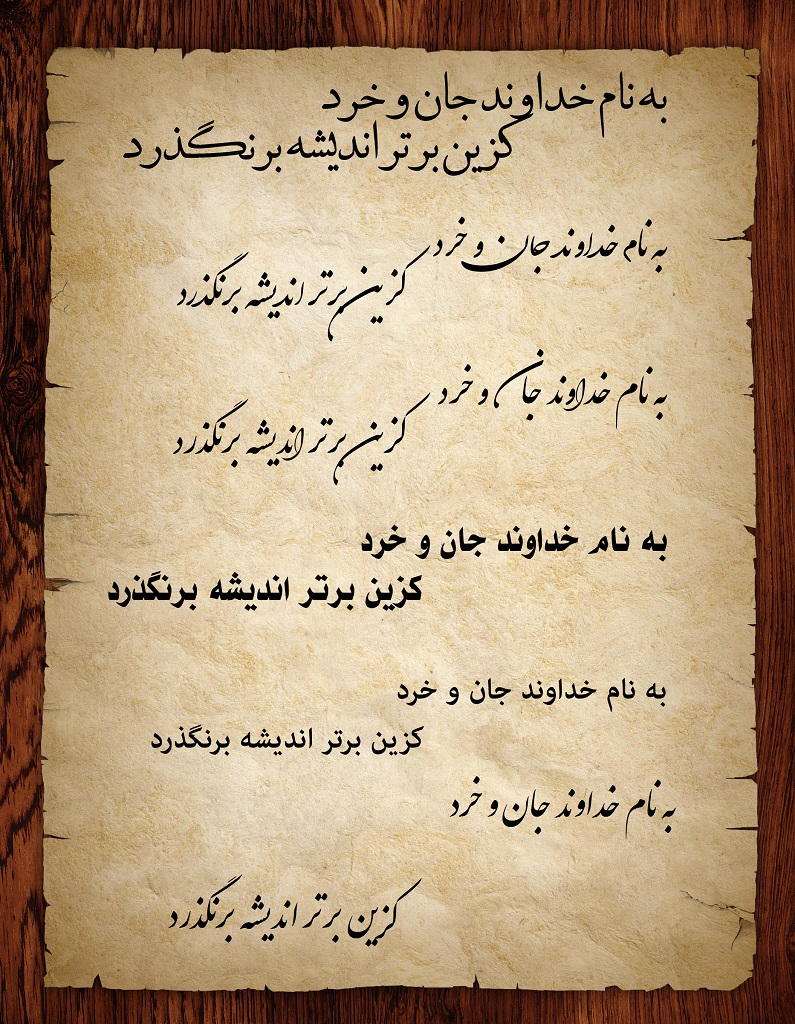 به نام خداوند جان و خرد
کزین برتر اندیشه برنگذرد
به نام خداوند جان و خرد
کزین برتر اندیشه برنگذرد
به نام خداوند جان و خرد
کزین برتر اندیشه برنگذرد
به نام خداوند جان و خرد
کزین برتر اندیشه برنگذرد
به نام خداوند جان و خرد
کزین برتر اندیشه برنگذرد
به نام خداوند جان و خرد
کزین برتر اندیشه برنگذرد